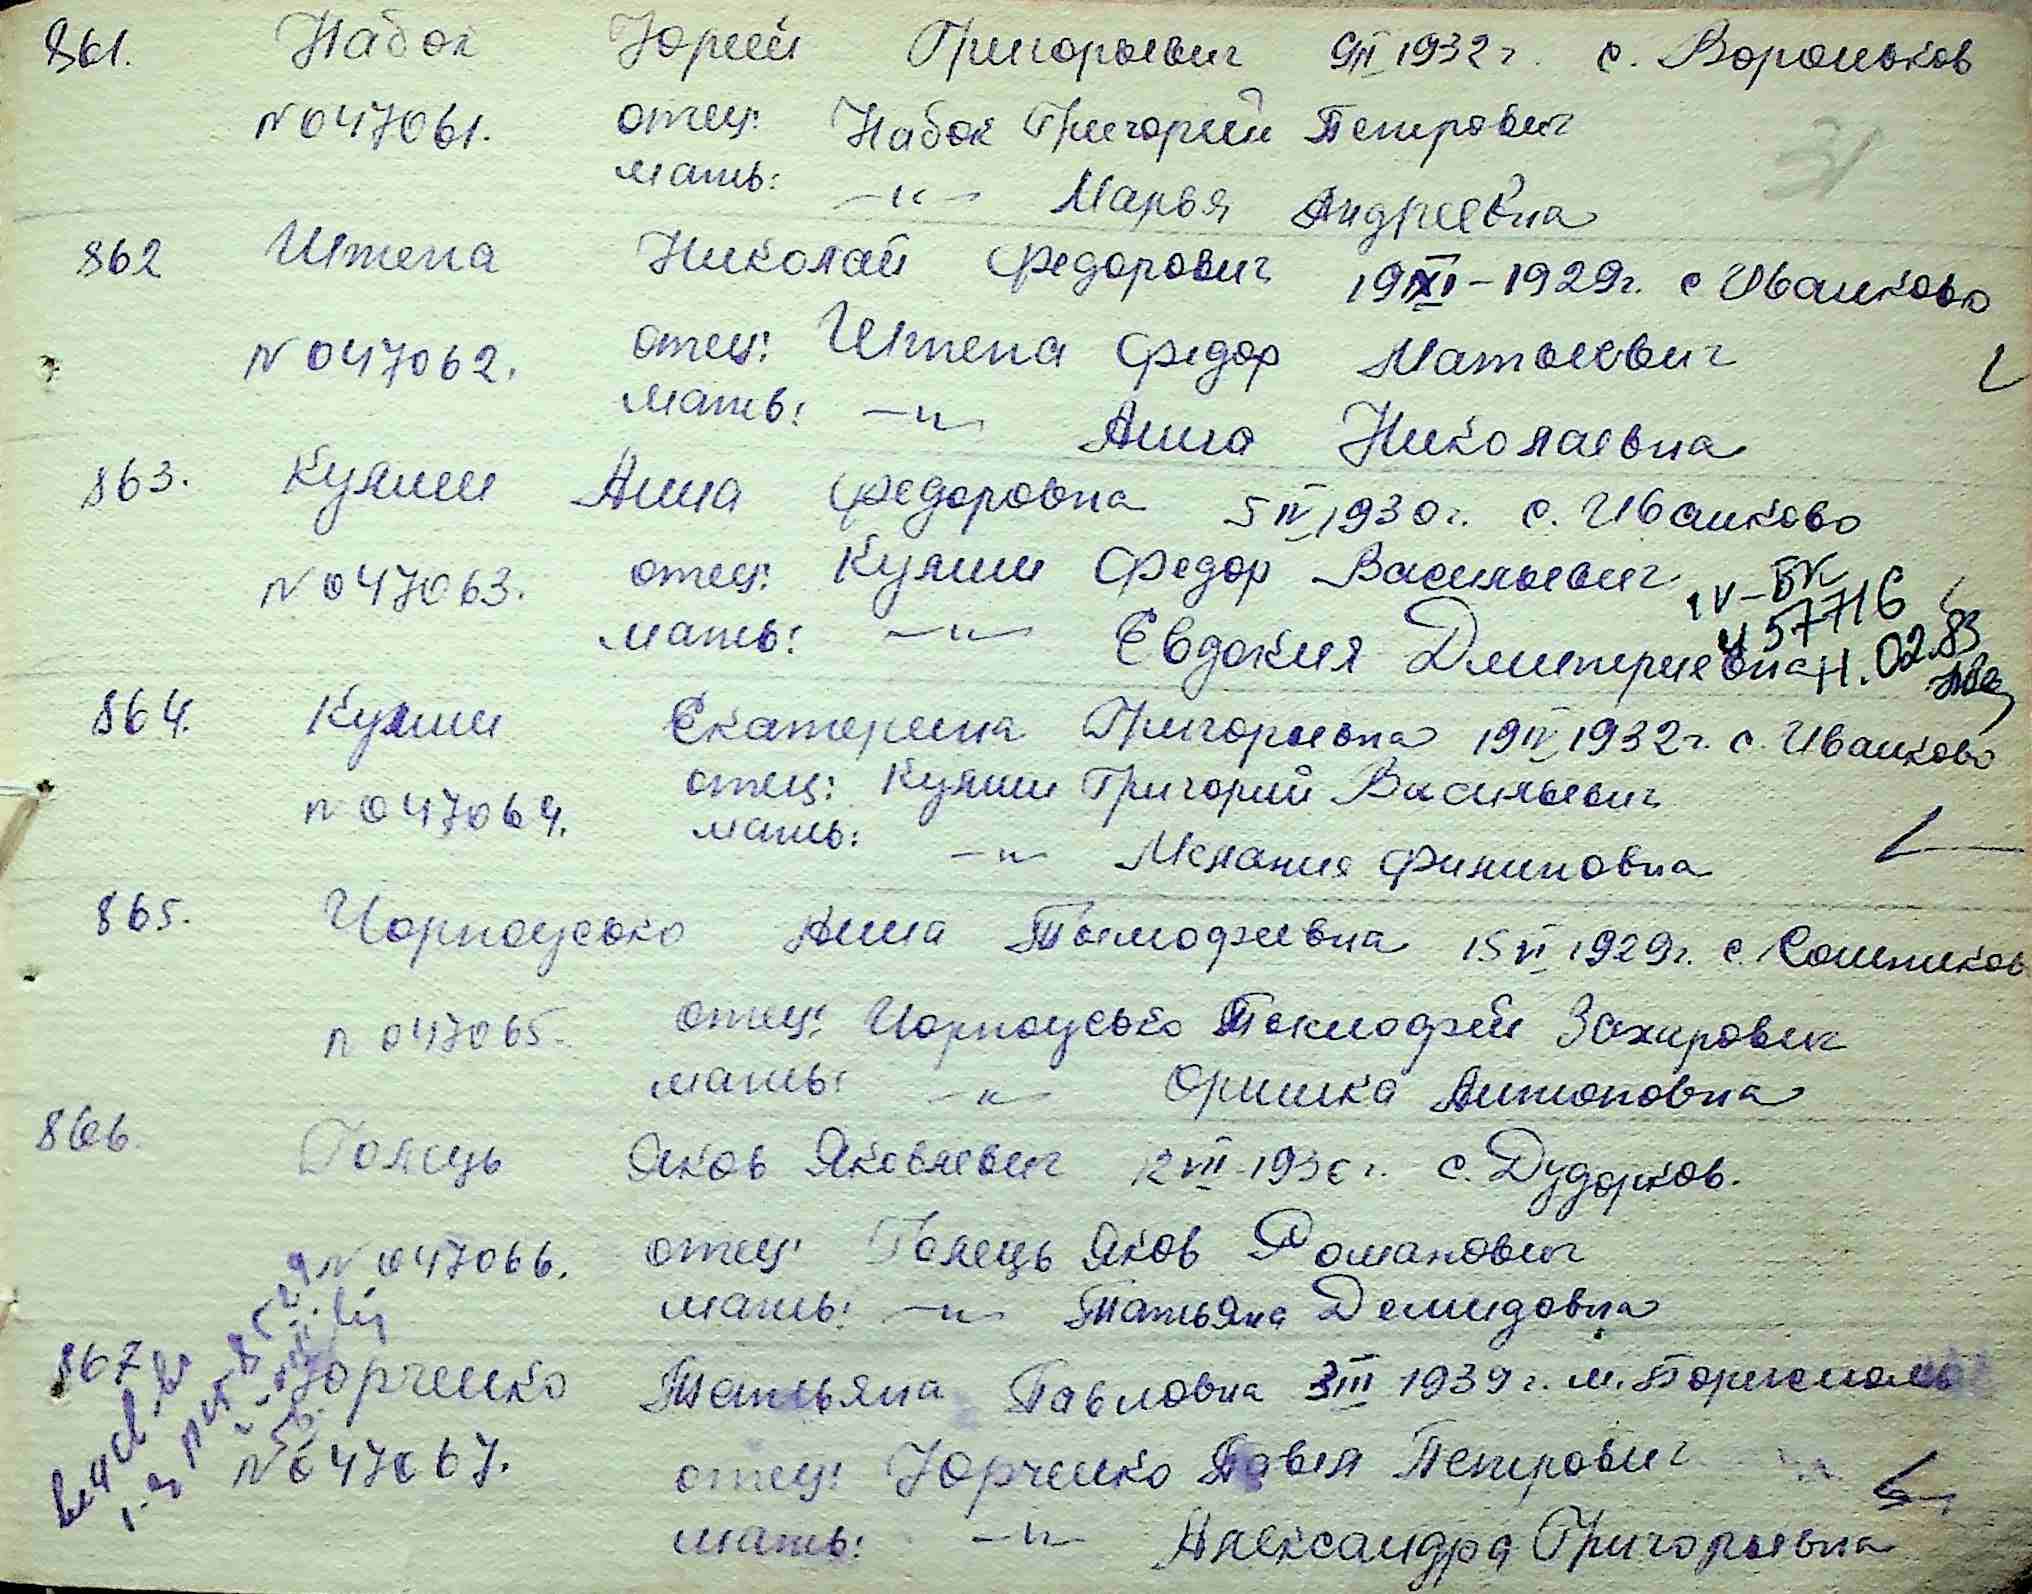 861. Набок Юрий Григорьевич 9 II 1932 г. с. Вороньков
31
N 047061. отец: Набок Григорий Петрович
мать: —"— Марья Андреевна
862 Штепа Николай Федорович 19 XI - 1929 г. с Иванково
N 047062. отец: Штепа Федор Матвеевич
мать: —"— Анна Николаевна
863. Куянш Анна Федоровна 5 IV 1930 г. с. Иванково
N 047063. отец: Куянш Федор Васильевич
IV-БК
457716
мать: —"— Евдокия Дмитриевна 02.83
864. Куянш Екатерина Григорьевна 19 IV 1932 г. с. Иванково
N 047064. отец: Куянш Григорий Васильевич
мать: —"— Мелания Филиповна
865. Чорноусько Анна Тымофеевна 15 VI 1929 г. с. Сошников
N 047065. отец: Чорноусько Тимофей Захарович
мать: —"— Оришка Антоновна
866. Голець Яков Яковлевич 12 VII - 1930 г. с. Дударков.
N 047066. отец: Голець Яков Романович
мать: —"— Татьяна Демидовна
867 Юрченко Татьяна Павловна 3 III 1939 г. м. Борисполь
N 047067. отец: Юрченко Павел Петрович
мать: —"— Александра Григорьевна